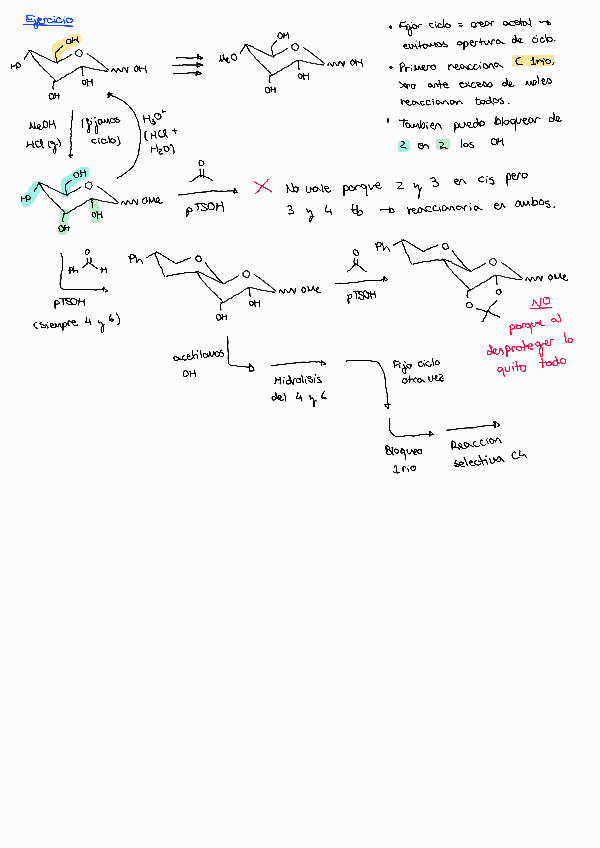 Ejercicio
• Fijar ciclo = crear acetal →
evitamos apertura de ciclo.
• Primero reacciona C 1rio,
xro ante exceso de moles
reaccionan todos.
• Tambien puedo bloquear de
2 en 2 los OH
OH
HO
O
OH
OH
OH
MeO
OH
O
OH
OH
OH
MeOH
HCl (g)
(fijamos
ciclo)
H₃O⁺
(HCl +
H₂O)
HO
OH
O
OH
OH
OMe
O
pTSOH
X No vale porque 2 y 3 en cis pero
3 y 4 tb → reaccionaria en ambos.
Ph
O
H
pTSOH
(siempre 4 y 6)
Ph
O
O
OH
OH
OMe
O
pTSOH
Ph
O
O
O
O
OMe
NO
porque al
desproteger lo
quito todo
acetilamos
OH
Hidrolisis
del 4 y 6
Fijo ciclo
otra vez
Bloqueo
1rio
Reaccion
selectiva C4